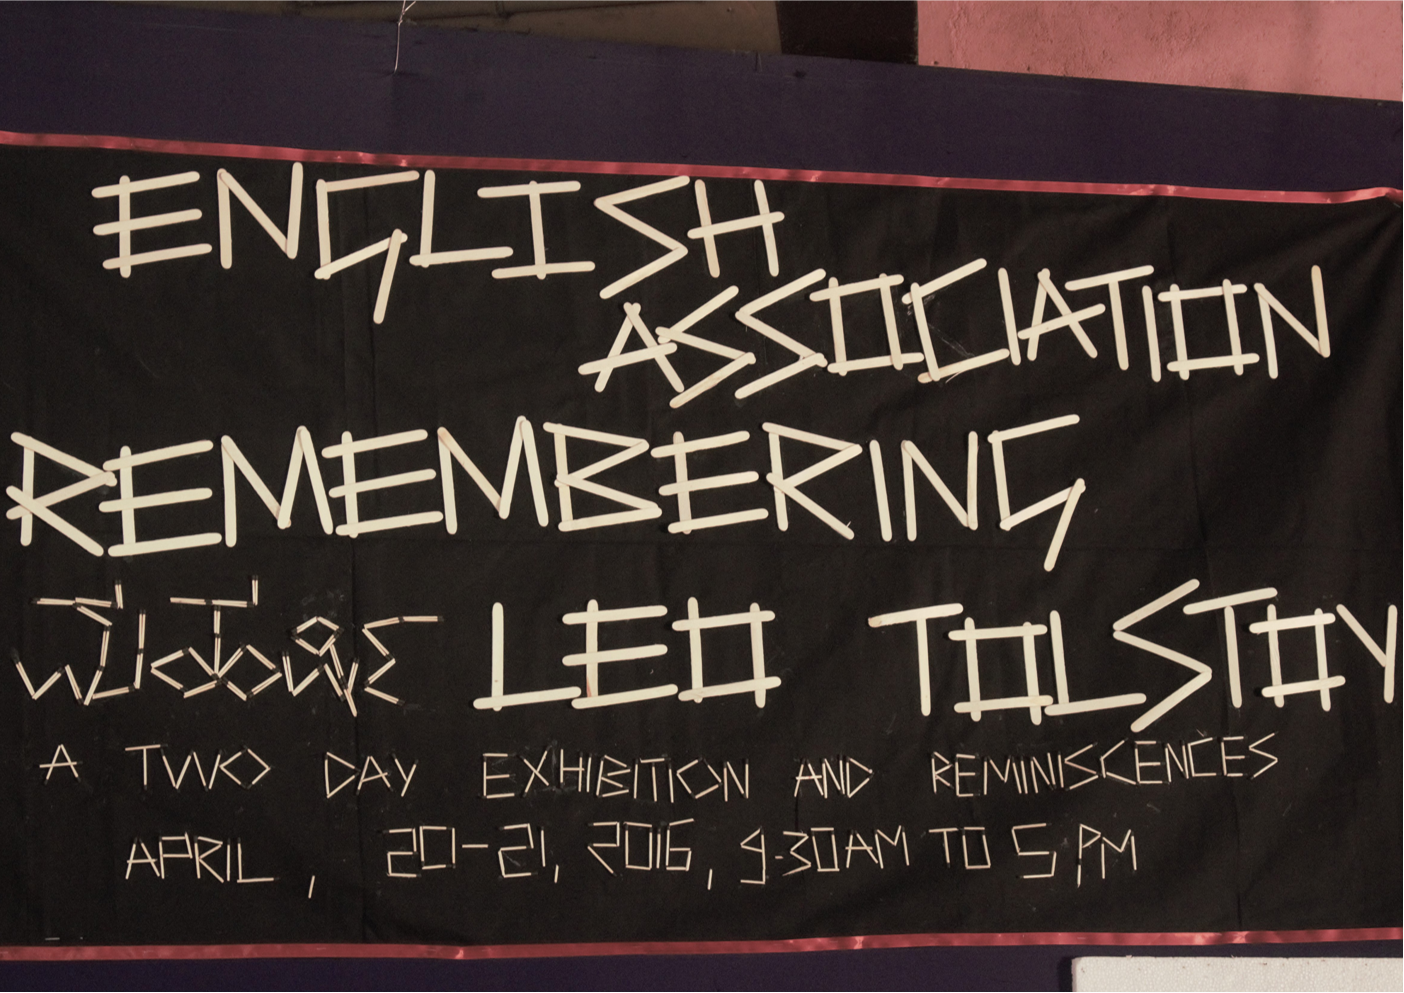 ENGLISH
ASSOCIATION
REMEMBERING
LEO TOLSTOY
A TWO DAY EXHIBITION AND REMINISCENCES
APRIL, 20-21, 2016, 9-30AM TO 5 PM